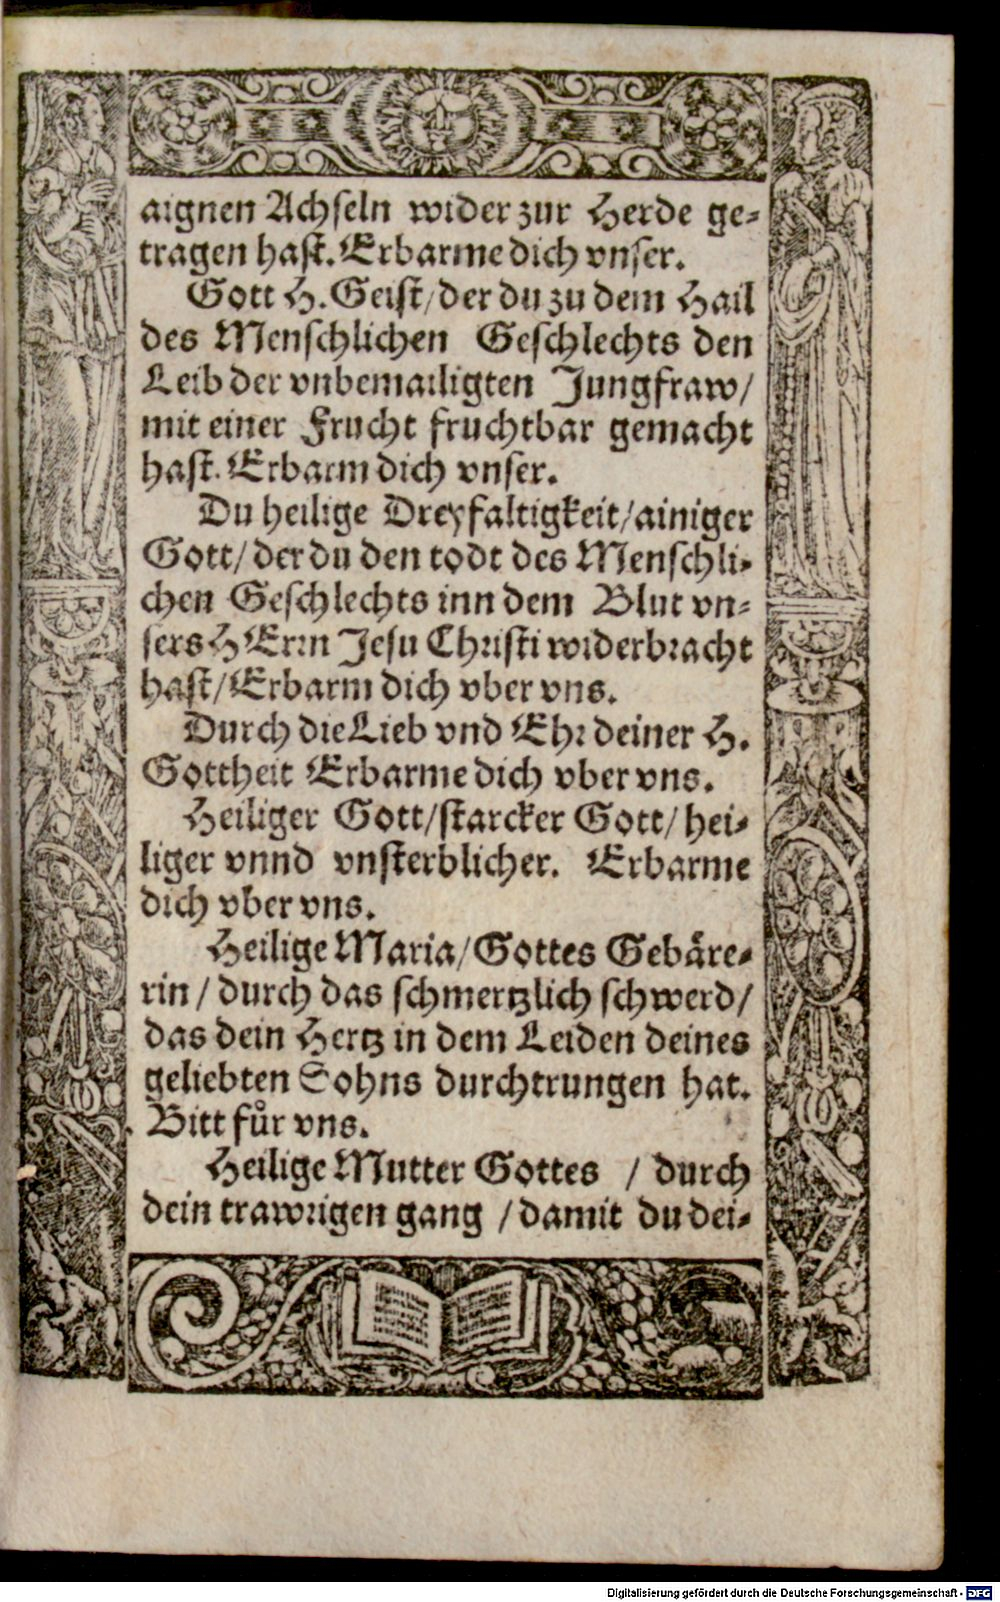 aignen Achseln wider zur Herde ge-
tragen hast. Erbarme dich vnser.
Gott H. Geist/der du zu dem Hail
des Menschlichen Geschlechts den
Leib der vnbemailigten Jungfraw/
mit einer Frucht fruchtbar gemacht
hast. Erbarm dich vnser.
Du heilige Dreyfaltigkeit/ainiger
Gott/der du den todt des Menschli-
chen Geschlechts inn dem Blut vn-
sers HErrn Jesu Christi widerbracht
hast/Erbarm dich vber vns.
Durch die Lieb vnd Ehr deiner H.
Gottheit Erbarme dich vber vns.
Heiliger Gott/starcker Gott/hei-
liger vnnd vnsterblicher. Erbarme
dich vber vns.
Heilige Maria/Gottes Gebäre-
rin/durch das schmertzlich schwerd/
das dein Hertz in dem Leiden deines
geliebten Sohns durchtrungen hat.
Bitt fuͤr vns.
Heilige Mutter Gottes / durch
dein trawrigen gang /damit du dei-
Digitalisierung gefördert durch die Deutsche Forschungsgemeinschaft - DFG